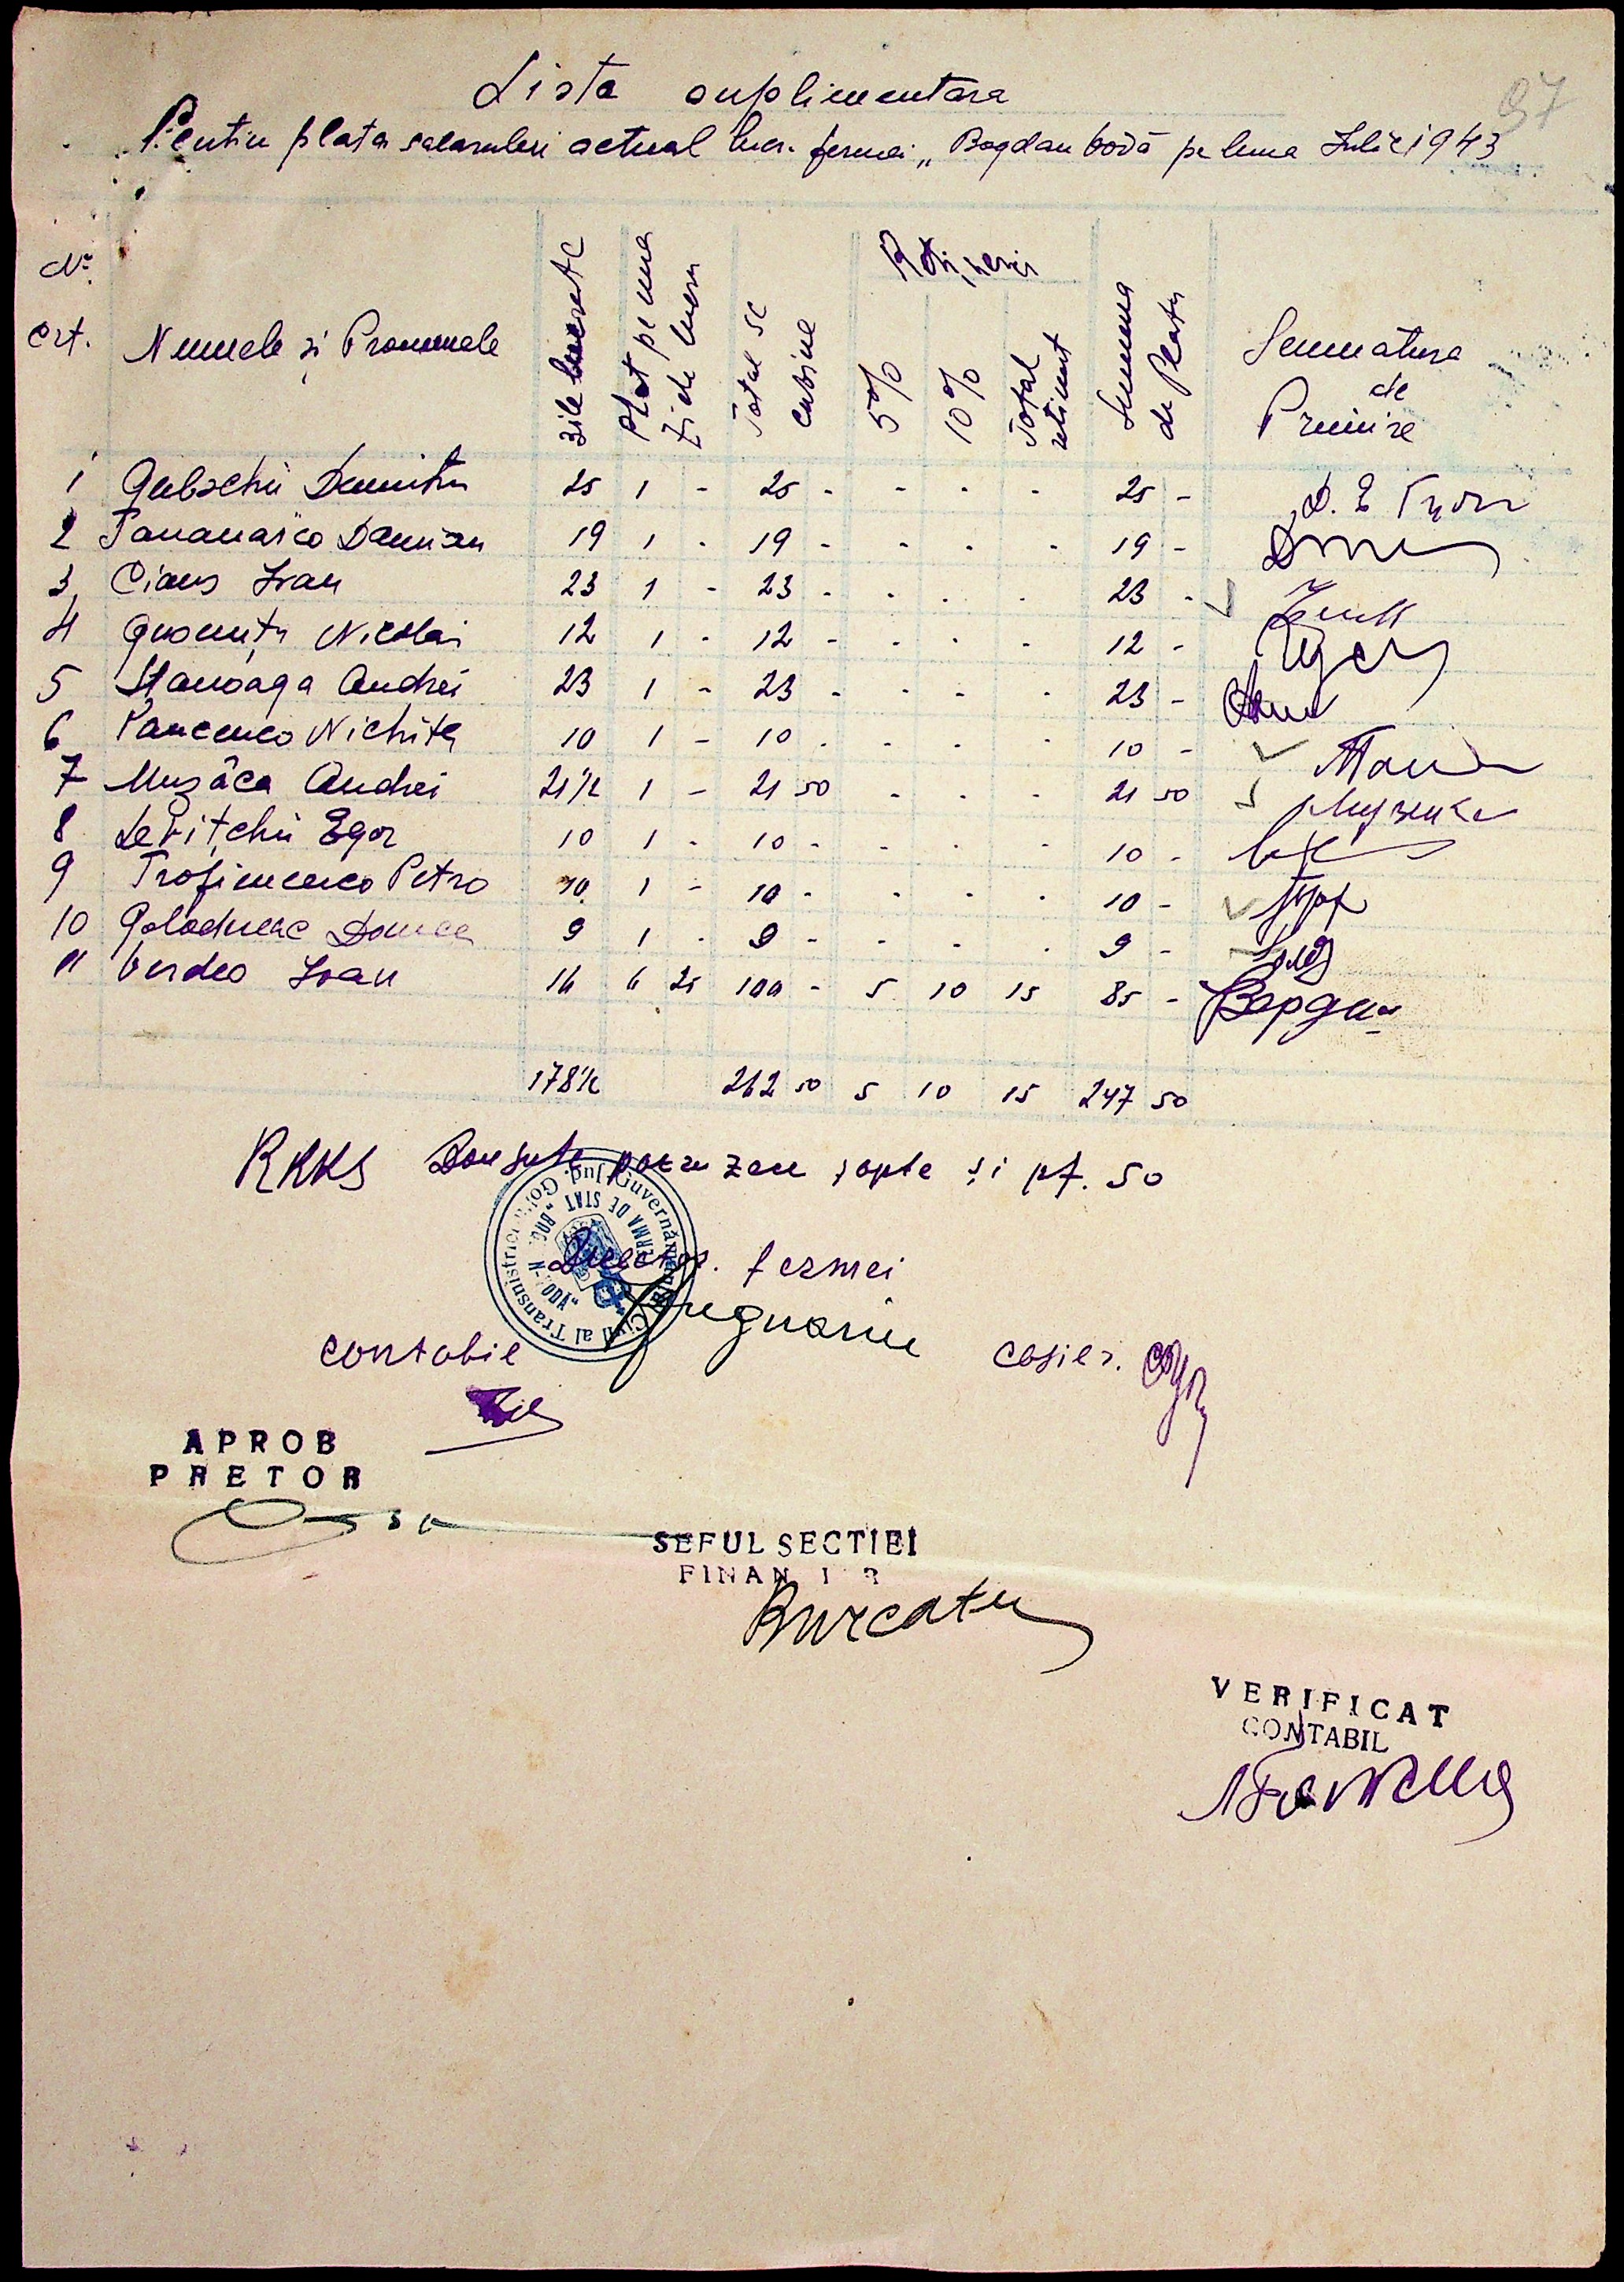 97
Lista suplimentara
Pentru plata salarului actual lucr. fermei „Bogdan Vodă pe luna Iulie 1943
Nr. crt. Numele si Pronumele zile lucrate Plat pe una zi de lucru Total se cuvine Rețineri 5% 10% Total retinut Summa de Plata Semnatura de Primire
1 Gubschii Dumitru 25 1 - 25 - - - - 25 -
2 Tananaico Damian 19 1 - 19 - - - - 19 -
3 Ciaus Ivan 23 1 - 23 - - - - 23 -
4 Nicolai 12 1 - 12 - - - - 12 -
5 Stanoaga Andrei 23 1 - 23 - - - - 23 -
6 Pancenco Nichita 10 1 - 10 - - - - 10 -
7 Muzâca Andrei 21½ 1 - 21 50 - - - 21 50
8 Levițchii Egor 10 1 - 10 - - - - 10 -
9 Trofimenco Petro 10 1 - 10 - - - - 10 -
10 9 1 - 9 - - - - 9 -
11 Verdeo Ivan 16 6 25 100 - 5 10 15 85 -
178½ 262 50 5 10 15 247 50
RKKS Doua sute patru zeci șapte și pf. 50
Guvernământul Civil al Transnistriei Jud. Golta
FERMA DE STAT
Director. fermei
contabil casier.
APROB
PRETOR
SEFUL SECTIEI
FINAN I R
Burcatu
VERIFICAT
CONTABIL